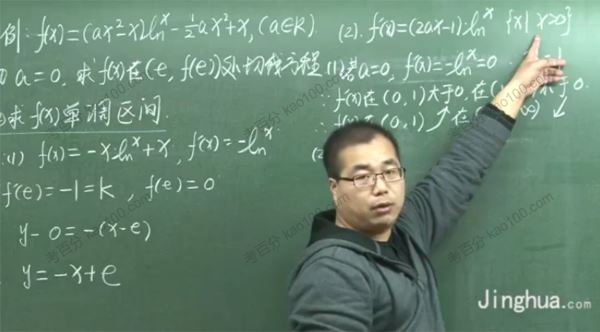 例: f(x)=(ax²-x)lnx-½ax²+x, (a∈R).
a=0, 求f(x)在(e, f(e))处切线方程
求f(x)单调区间
(1) f(x)=-xlnx+x, f'(x)=-lnx
f'(e)=-1=k f(e)=0
y-0=-(x-e)
y=-x+e
(2). f'(x)=(2ax-1)·lnx {x|x>0}
(1)若a=0, f'(x)=-lnx=0
f'(x)在(0,1)大于0, 在(1 小于0.
∴ (0,1)↗在 ∞)↙
(2
考百分 kao100.com
Jinghua.com